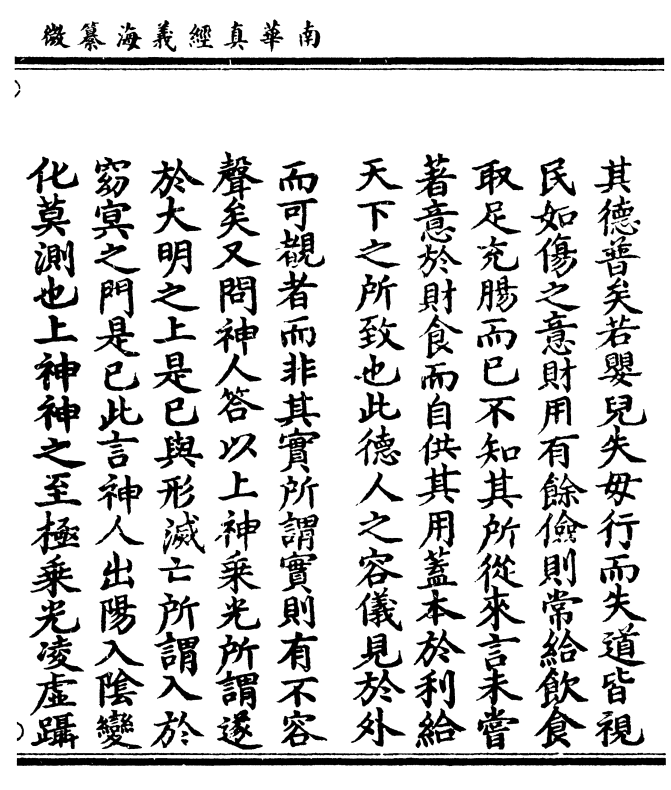 南華真經義海纂微
其德普矣若嬰兒失母行而失道皆視
民如傷之意財用有餘儉則常給飲食
取足充腸而已不知其所從來言未嘗
著意於財食而自供其用蓋本於利給
天下之所致也此德人之容儀見於外
而可覩者而非其實所謂實則有不容
聲矣又問神人答以上神乘光所謂遂
於大明之上是已與形滅亡所謂入於
窈冥之門是已此言神人出陽入陰變
化莫測也上神神之至極乘光凌虛躡